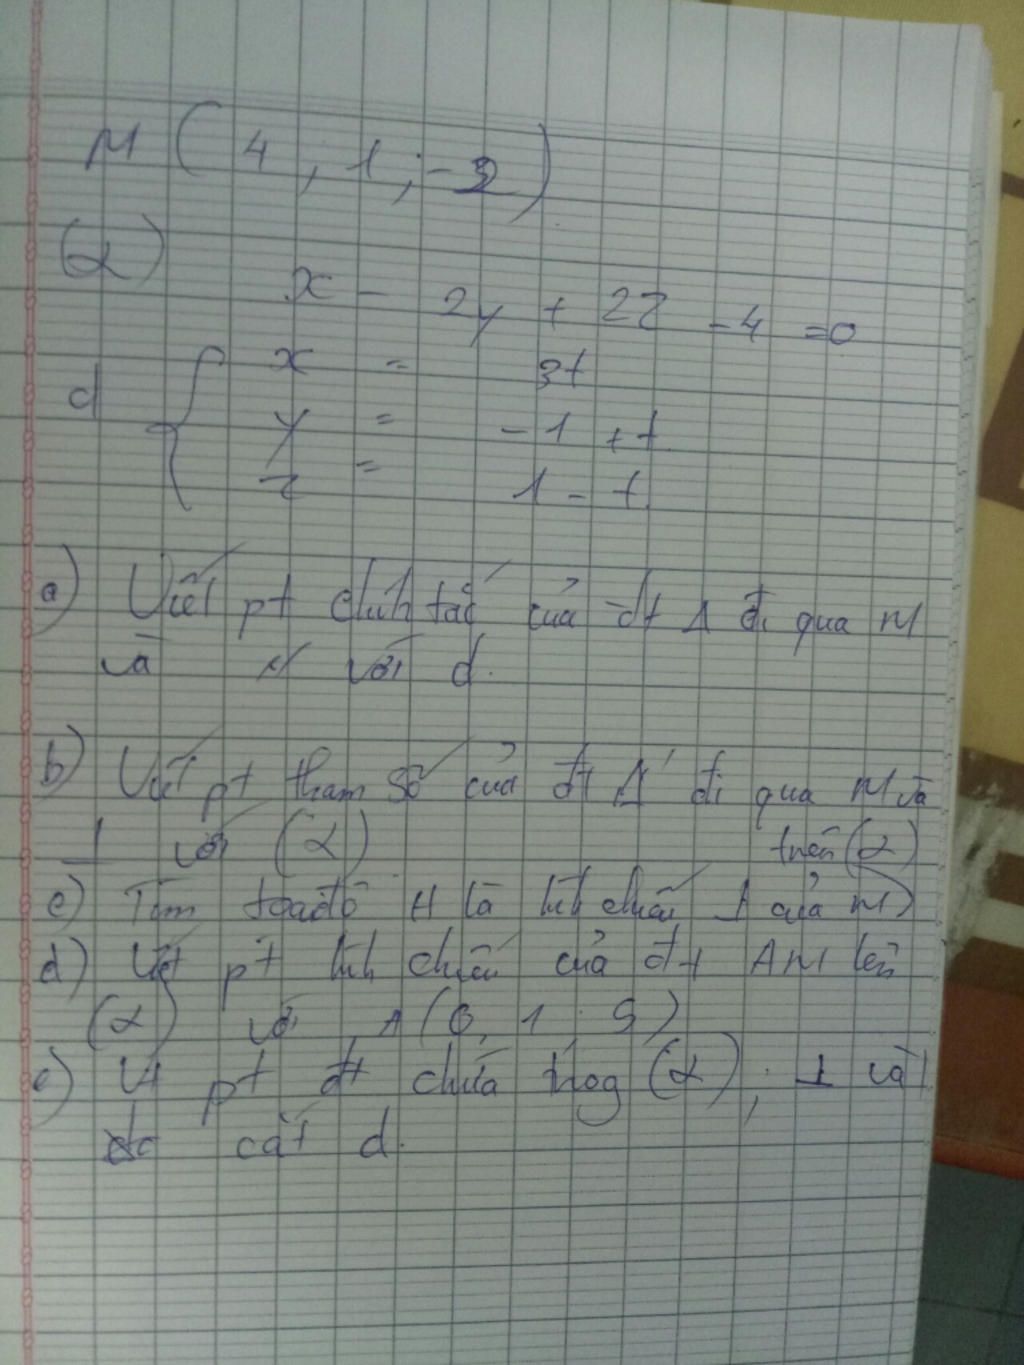 M ( 4 , 1 ; -3 )
(α) x - 2y + 2z - 4 = 0
d { x = 3t
y = -1 + t
z = 1 - t
a) Viết pt chính tắc của đt Δ đi qua M
và // với d.
b) Viết pt tham số của đt Δ' đi qua M và
⊥ với (α)
trên (α)
c) Tìm toạ độ H là hình chiếu ⊥ của M
d) Viết pt hình chiếu của đt AM lên
(α) với A (0, 1; 5)
e) Vt pt đt chứa trong (α), ⊥ và
cắt d.